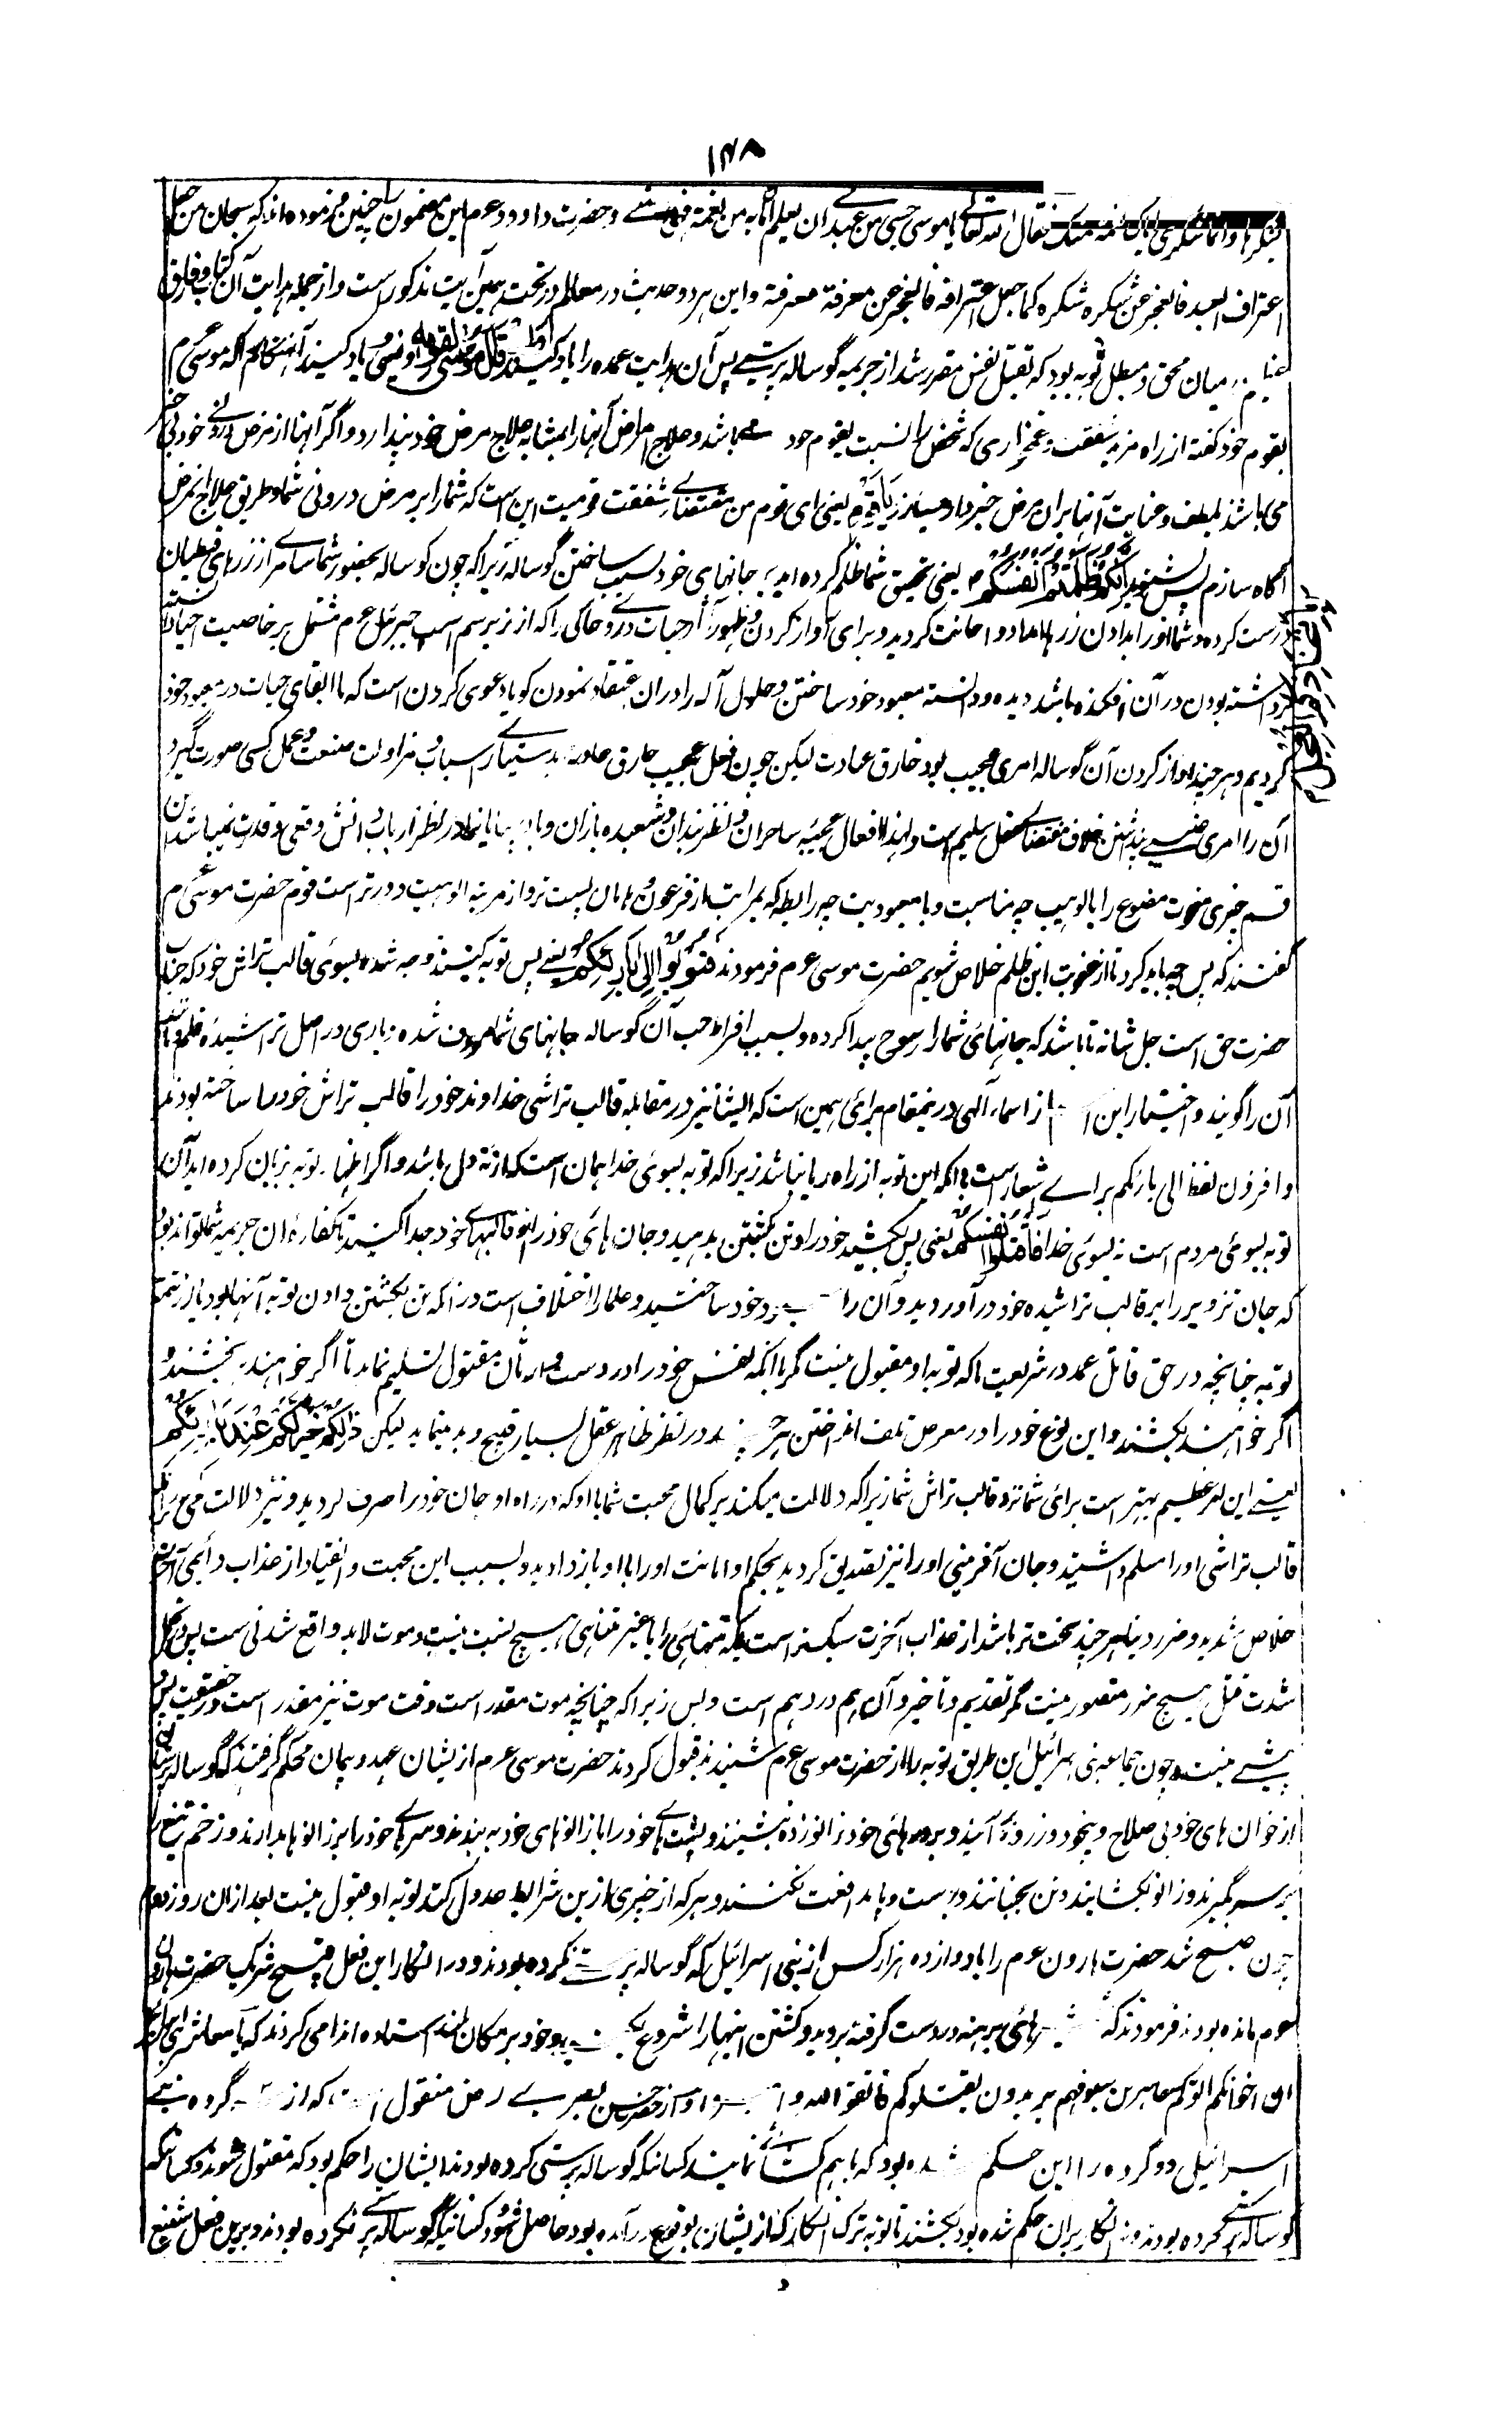 ۱۴۸
فتعال الله تعالی یا موسی حسبی من عبدی ان یعلم ان ما به من نعمة فهو منی و حضرت داود عم این مضمون را چنین فرموده اند که سبحان من جعل
اعتراف العبد فالعجز عن شکره شکره کما جعل اعترافه فالعجز عن معرفة معرفة و این هر دو حدیث در معالم در تحت همین آیت مذکور است و از جمله هدایت آن کتاب و فارق
میان محق و مبطل توبه بود که تقبل نفس مقرر شد از جریمه گوساله پرستی پس آن هدایت عمده را یاد کنید و اذ قال موسی لقومه و نیز یاد کنید آن هنگام که موسی عم
بقوم خود گفته از راه مزید شفقت و غمخواری که شخص را نسبت بقوم خود می باشد و علاج امراض آنها را بمثابه علاج مرض خود پندارد و اگر آنها از مرض درونی خود بی خبر
می باشند بلطف و عنایت آنها را بران مرض خبردار میسازد یا قوم یعنی ای قوم من مقتضای شفقت قومیت این است که شما را بر مرض درونی شما و طریق علاج آن مرض
آگاه سازم پس بشنوید انکم ظلمتم انفسکم یعنی تحقیق شما ظلم کرده اید بر جانهای خود بسبب ساختن گوساله زیرا که چون گوساله بحضور شما سامری از زرهای قبطیان
درست کرده و شما او را بدادن زرها امداد و اعانت کردید و برای آواز کردن و ظهور آثار حیات دروی خاکی را که از زیر سم اسپ جبرئیل عم مشتمل بر خاصیت احیا
برداشته بودن در آن افکنده باشد دیده و دانسته معبود خود ساختن و حلول آله را در ان اعتقاد نمودن گویا دعوی کردن است که ما القای حیات در معبود خود
کردیم و هر چند آواز کردن آن گوساله امری عجیب بود خارق عادت لیکن چون فعل عجیب خارق عادت بدستیاری اسباب و مزاولت صنعت و عمل کسی صورت گیرد
آن را امری غیبی پنداشتن خلاف مقتضای عقل سلیم است و لهذا افعال عجیبه ساحران و نظر بندان و شعبده بازان در نظر ارباب دانش وقعی و قدری نمیباشد این
قسم چیزی منحوت مصنوع را بالوهیت چه مناسبت و با معبودیت چه رابطه که بمراتب از فرعون و هامان پست تر و از مرتبه الوهیت دورتر است قوم حضرت موسی عم
گفتند که پس چه باید کرد تا از عقوبت این ظلم خلاص شویم حضرت موسی عم فرمودند فتوبوا الی بارئکم یعنی پس توبه کنید متوجه شده بسوی قالب تراش خود که جناب
حضرت حق است جل شانه تا باشد که جانهای شما را رجوع پیدا کرده و بسبب افراط حب آن گوساله جانهای شما بیرون شده و باری در اصل تراشیده قلم و مانند
آن را گویند و اختیار این از اسماء آلهی درین مقام برای همین است که ایشان نیز در مقابله قالب تراشی خداوند خود را قالب تراش خود ساخته بودند
و افزودن لفظ الی بارئکم برای اشعار است بانکه این توبه از راه ریا نباشد زیرا که توبه بسوی خدا همان است که از ته دل باشد و اگر اظهار توبه بزبان کرده اید آن
توبه بسوی مردم است نه بسوی خدا فاقتلوا انفسکم یعنی پس بکشید خود را و تن بکشتن بدهید و جان های خود را از قالبهای خود جدا کنید تا کفاره این جریمه شما تواند بود
که جان تزویر را بر قالب تراشیده خود در آوردید و آن را معبود خود ساختید و علما را اختلاف است در آنکه تن بکشتن دادن توبه آنها بود یا از تتمه
توبه چنانچه در حق قاتل عمد در شریعت ما که توبه او مقبول نیست مگر بآنکه نفس خود را در دست وارثان مقتول تسلیم نماید تا اگر خواهند ببخشند و
اگر خواهند بکشند و این نوع خود را در معرض تلف انداختن هر چند در نظر ظاهر عقل بسیار قبیح و بد مینماید لیکن ذلکم خیر لکم عند بارئکم
یعنی این امر عظیم بهتر است برای شما نزد قالب تراش شما زیرا که دلالت میکند بر کمال محبت شما با او که در راه او جان خود را صرف کردید و نیز دلالت می کند بر آنکه
قالب تراشی او را مسلم داشتید و جان آفرینی او را نیز تصدیق کردید بحکم او امانت او را باو باز دادید و بسبب این محبت و انقیاد از عذاب دائمی آخرت
خلاص شدید و ضرر دنیا هر چند سخت تر باشد از عذاب آخرت سبکتر است بلکه متناهی را با غیر متناهی هیچ نسبت نیست و موت لابد واقع شدنی ست پس در تحمل
شدت قتل هیچ ضرر متصور نیست مگر تقدیم و تاخیر و آن هم در وهم است و بس زیرا که چنانچه موت مقدر است وقت موت نیز مقدر است و در حقیقت پس و
پیشی نیست و چون جماعه بنی اسرائیل این طریق توبه را از حضرت موسی عم شنیدند قبول کردند حضرت موسی عم از ایشان عهد و پیمان محکم گرفتند که گوساله پرستان
از خوان های خود بی سلاح و بیخود و زره بر آیند و بر درهائی خود زانو زده بنشینند و پشت های خود را با زانوهای خود به بندند و سرهای خود را بر زانوها بدارند و زخم تیغ را
بر سر بگیرند و زانو نکشایند و تن نجنبانند و بدست و پا مدافعت نکنند و هر که از چیزی ازین شرائط عدول کند توبه او مقبول نیست بعد از ان روز دوم
چون صبح شد حضرت هارون عم را با دوازده هزار کس از بنی اسرائیل که گوساله پرستی نکرده بودند و در انکار این فعل قبیح شریک حضرت هارون
عم مانده بودند فرمودند که شمشیرهائی برهنه در دست گرفته بروید و کشتن اینها را شروع کنید و خود بر مکان بلند استاده ندا می کردند که یا معاشر بنی اسرائیل
ان اخوانکم اتوکم شاهرین سیوفهم یریدون یقتلوکم فاتقوا الله و اصبروا و از حضرت حسن بصری رض منقول است که از سه گروه بنی
اسرائیل دو گروه را این حکم شده بود که باهم کشاکش نمایند کسانیکه گوساله پرستی کرده بودند ایشان را حکم بود که مقتول شوند و کسانیکه
گوساله پرستی نکرده بودند و نه انکار بران حکم شده بود بکشند تا توبه ترک انکار که از ایشان بوقوع در آمده بود حاصل شود و کسانیکه گوساله پرستی نکرده بودند و برین فعل شنیع